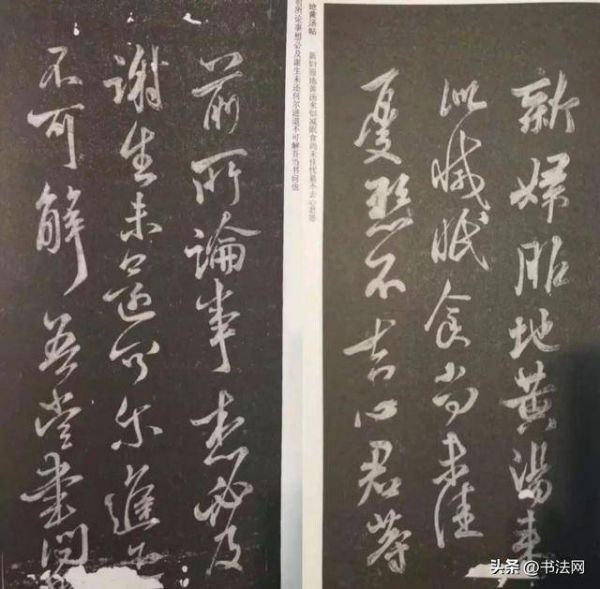 新婦服地黃湯來
似減眠食尚未佳
憂懸不去心君等
地黄汤帖
新妇服地黄汤来似减眠食尚未佳忧悬不去心君等
前所論事想必及
謝生未還可尔進退
不可解吾當書問
前所论事想必及谢生未还何尔进退不可解吾当书问也
头条@书法网